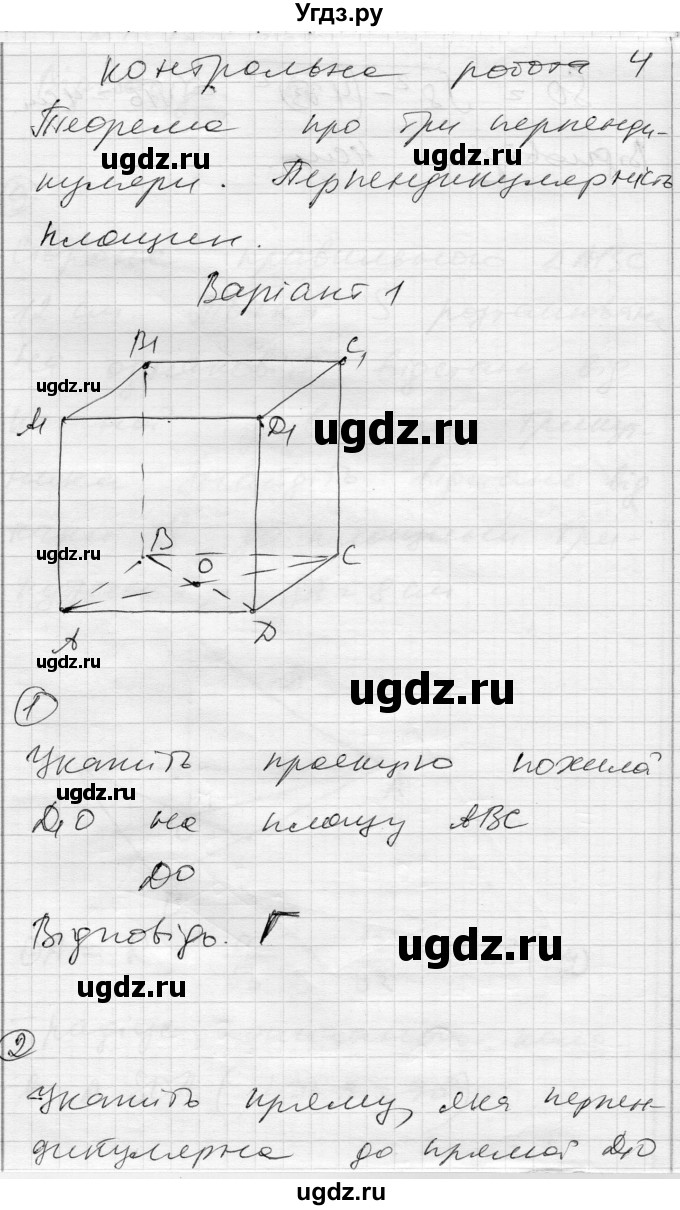 Угдз.ру
Контрольна робота 4
Теорема про три перпенди-
ugdz.ru ugdz.ru
куляри. Перпендикулярність
площин.
Варіант 1
B1 C1
ugdz.ru
A1 D1 ugdz.ru
ugdz.ru B O C
A D
ugdz.ru
1 ugdz.ru
Укажіть проекцію похилої
ugdz.ru
D1O на площу ABC
DO
Відповідь. Г
ugdz.ru
ugdz.ru
2
Укажіть пряму, яка перпен-
дикулярна до прямої D1O
ugdz.ru